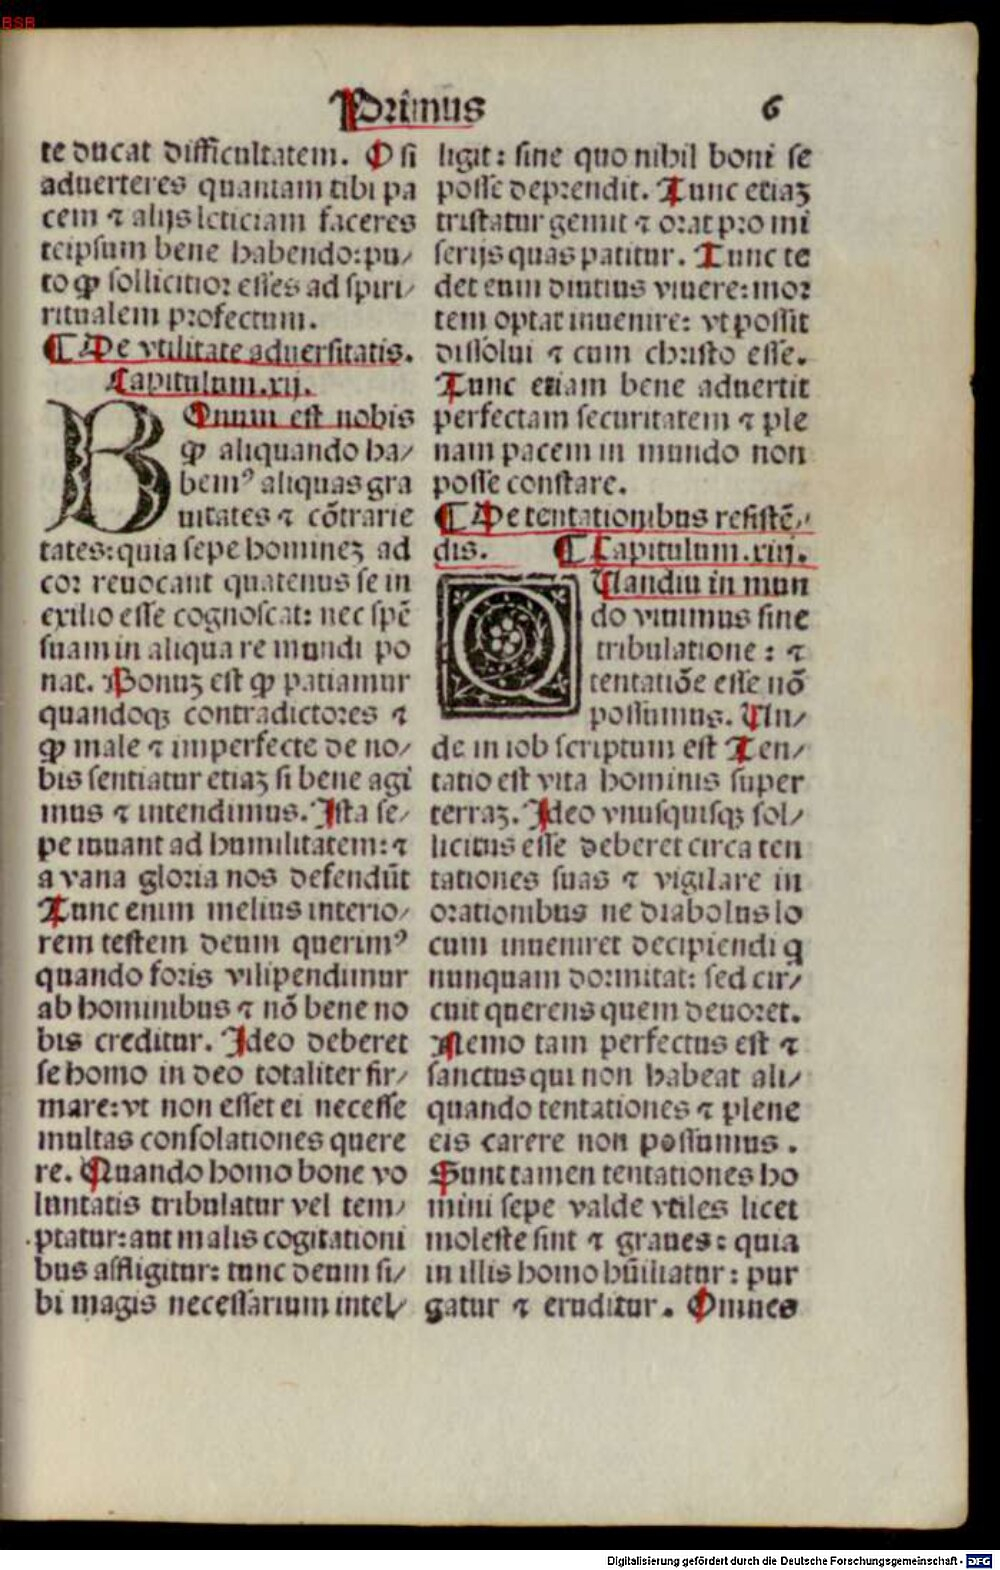 BSB
Primus 6
te ducat difficultatem. O si
aduerteres quantam tibi pa
cem ⁊ alijs leticiam faceres
teipsum bene habendo: pu⸗
to ꝙ sollicitior esses ad spiri⸗
ritualem profectum.
¶ De vtilitate aduersitatis.
Capitulum .xij.
BOnum est nobis
ꝙ aliquando ha⸗
bemꝰ aliquas gra
uitates ⁊ cõtrarie
tates: quia sepe homineꝫ ad
cor reuocant quatenus se in
exilio esse cognoscat: nec spẽ
suam in aliqua re mundi po
nat. Bonuꝫ est ꝙ patiamur
quandoqꝫ contradictores ⁊
ꝙ male ⁊ imperfecte de no⸗
bis sentiatur etiaꝫ si bene agi
mus ⁊ intendimus. Ista se⸗
pe iuuant ad humilitatem: ⁊
a vana gloria nos defendũt
Tunc enim melius interio⸗
rem testem deum querimꝰ
quando foris vilipendimur
ab hominibus ⁊ nõ bene no
bis creditur. Ideo deberet
se homo in deo totaliter fir⸗
mare: vt non esset ei necesse
multas consolationes quere
re. Quando homo bone vo
luntatis tribulatur vel tem⸗
ptatur: aut malis cogitationi
bus affligitur: tunc deum si⸗
bi magis necessarium intel⸗
ligit: sine quo nihil boni se
posse deprendit. Tunc etiaꝫ
tristatur gemit ⁊ orat pro mi
serijs quas patitur. Tunc te
det eum diutius viuere: mor
tem optat inuenire: vt possit
dissolui ⁊ cum christo esse.
Tunc etiam bene aduertit
perfectam securitatem ⁊ ple
nam pacem in mundo non
posse constare.
¶ De tentationibus resistẽ⸗
dis. ¶ Capitulum .xiij.
QUandiu in mun
do viuimus sine
tribulatione: ⁊
tentatiõe esse nõ
possumus. Un⸗
de in iob scriptum est Ten⸗
tatio est vita hominis super
terraꝫ. Ideo vnusquisqꝫ sol⸗
licitus esse deberet circa ten
tationes suas ⁊ vigilare in
orationibus ne diabolus lo
cum inueniret decipiendi q̃
nunquam dormitat: sed cir⸗
cuit querens quem deuoret.
Nemo tam perfectus est ⁊
sanctus qui non habeat ali⸗
quando tentationes ⁊ plene
eis carere non possumus.
Sunt tamen tentationes ho
mini sepe valde vtiles licet
moleste sint ⁊ graues: quia
in illis homo hũiliatur: pur
gatur ⁊ eruditur. Omnes
Digitalisierung gefördert durch die Deutsche Forschungsgemeinschaft - DFG